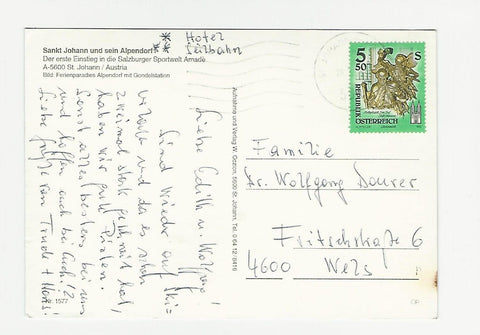 Sankt Johann und sein Alpendorf
Der erste Einstieg in die Salzburger Sportwelt Amadé
A-5600 St. Johann / Austria
Bild: Ferienparadies Alpendorf mit Gondelstation
** Hotel
Seilbahn
Liebe Edith u. Wolfgang!
Sind wieder auf Ski=
urlaub und da es schon
zweimal stark geschneit hat,
haben wir gute Pisten.
Sonst alles bestens bei uns
und hoffen auch bei Euch!
Liebe Grüße von Trude + Hans!
1577
Aufnahme und Verlag W. 5600 St. Johann, Tel. 0 64 12 / 8416
5 S
50
REPUBLIK
ÖSTERREICH
Familie
Dr. Wolfgang Daurer
Fritschstraße 6
4600 Wels